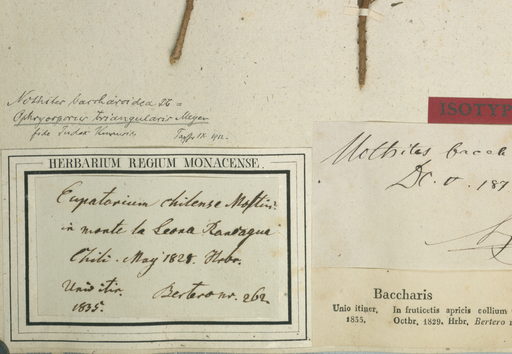 Nothites baccharoidea DC =
Ophryosporus triangularis Meyen
fide Index Kewensis
ISOTYP
HERBARIUM REGIUM MONACENSE.
Eupatorium chilense
in monte la Leona Rancagua
Chili. May 1828. Hrbr.
Unio itin.
1835.
Bertero nr. 262
Nothites bacch
DC. v. 187
Baccharis
Unio itiner.
1835.
In fruticetis apricis collium
Octbr. 1829. Hrbr. Bertero n